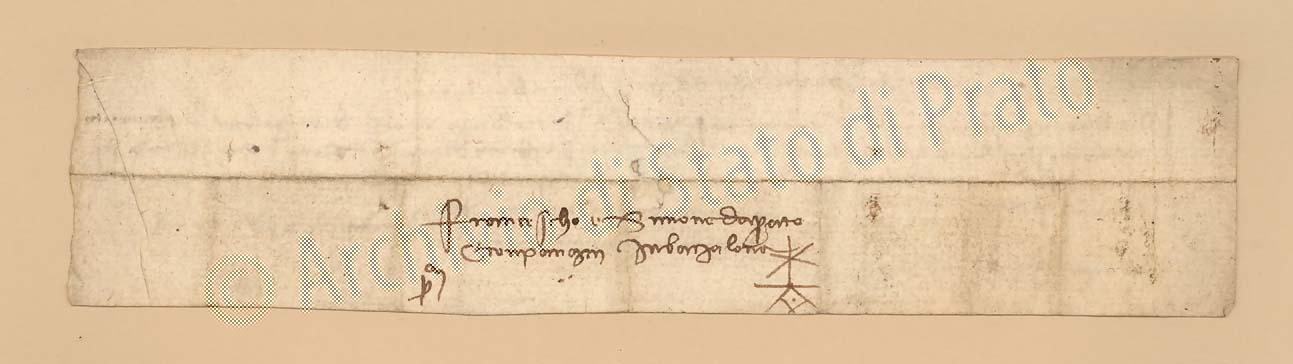 © Archivio di Stato di Prato
Francischo e Simone daprato
Chonpangni Inbarzalona
pª